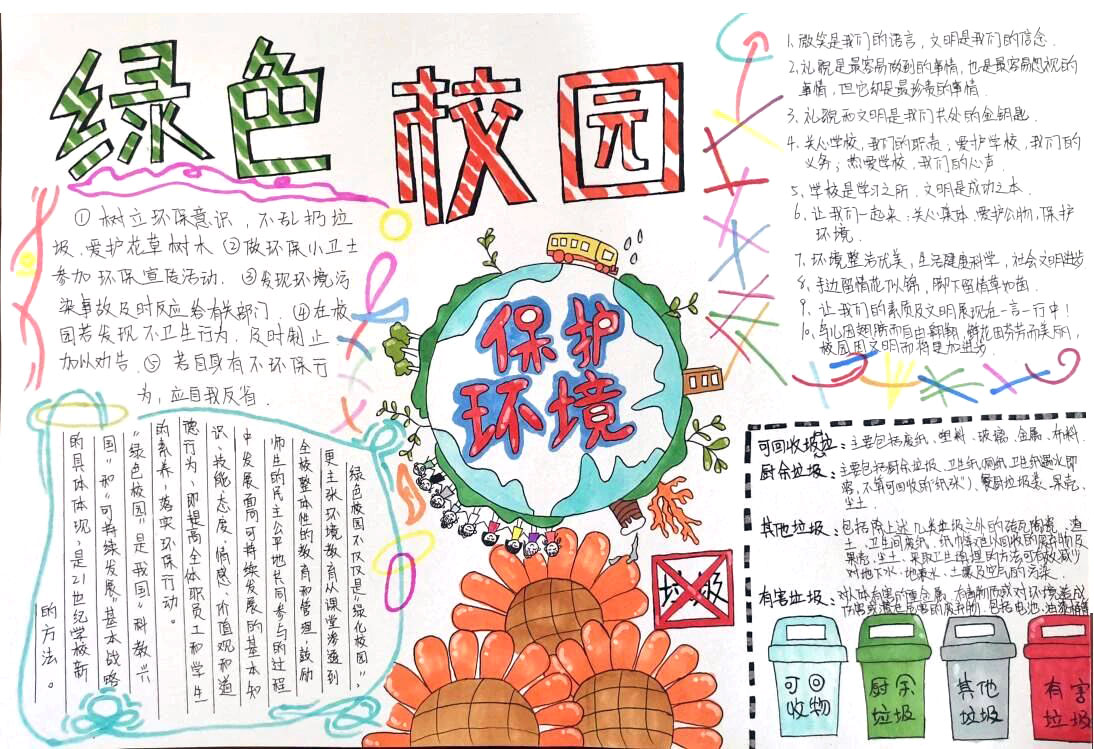 绿色校园
① 树立环保意识，不乱扔垃
圾，爱护花草树木 ②做环保小卫士
参加环保宣传活动．③发现环境污
染事故及时反应给有关部门．④在校
园若发现不卫生行为，及时制止
加以劝告．⑤ 若自身有不环保行
为，应自我反省．
保护
环境
1. 微笑是我们的语言，文明是我们的信念．
2. 礼貌是最容易做到的事情，也是最容易忽视的
事情，但它却是最珍贵的事情．
3. 礼貌和文明是我们共处的金钥匙．
4. 关心学校，我们的职责；爱护学校，我们的
义务；热爱学校，我们的心声．
5. 学校是学习之所．文明是成功之本．
6. 让我们一起来：关心集体，爱护公物，保护
环境．
7. 环境整洁优美，生活健康科学，社会文明进步
8. 手边留情花似锦，脚下留情草如茵．
9. 让我们的素质及文明展现在一言一行中！
10. 鸟儿因翅膀而自由翱翔，鲜花因芬芳而美丽，
校园因文明而将更加进步．
绿色校园不仅仅是“绿化校园”，
更主张环境教育从课堂渗透到
全校整体性的教育和管理．鼓励
师生的民主公平地共同参与的过程
中发展面向可持续发展的基本知
识、技能、态度、情感、价值观和道
德行为、即提高全体职员工和学生
的素养，落实环保行动。
“绿色校园”是我国“科教兴
国”和“可持续发展”基本战略
的具体体现，是21世纪学校新
的方法。
垃圾
可回收垃圾：主要包括废纸、塑料、玻璃、金属、布料．
厨余垃圾：主要包括厨余垃圾、卫生纸(厕纸、卫生纸遇水即
溶，不算可回收的“纸张”)、餐厨垃圾袋、果壳、
尘土．
其他垃圾：包括除上述几类垃圾之外的砖瓦陶瓷、渣
土、卫生间废纸、纸巾等难以回收的废弃物及
果壳、尘土．采取卫生填埋的方法可有效减少
对地下水、地表水、土壤及空气的污染．
有害垃圾：对人体有害的重金属、有毒物质或对环境造成
危害或潜在危害的废弃物，包括电池、油漆桶等
可回
收物
厨余
垃圾
其他
垃圾
有害
垃圾